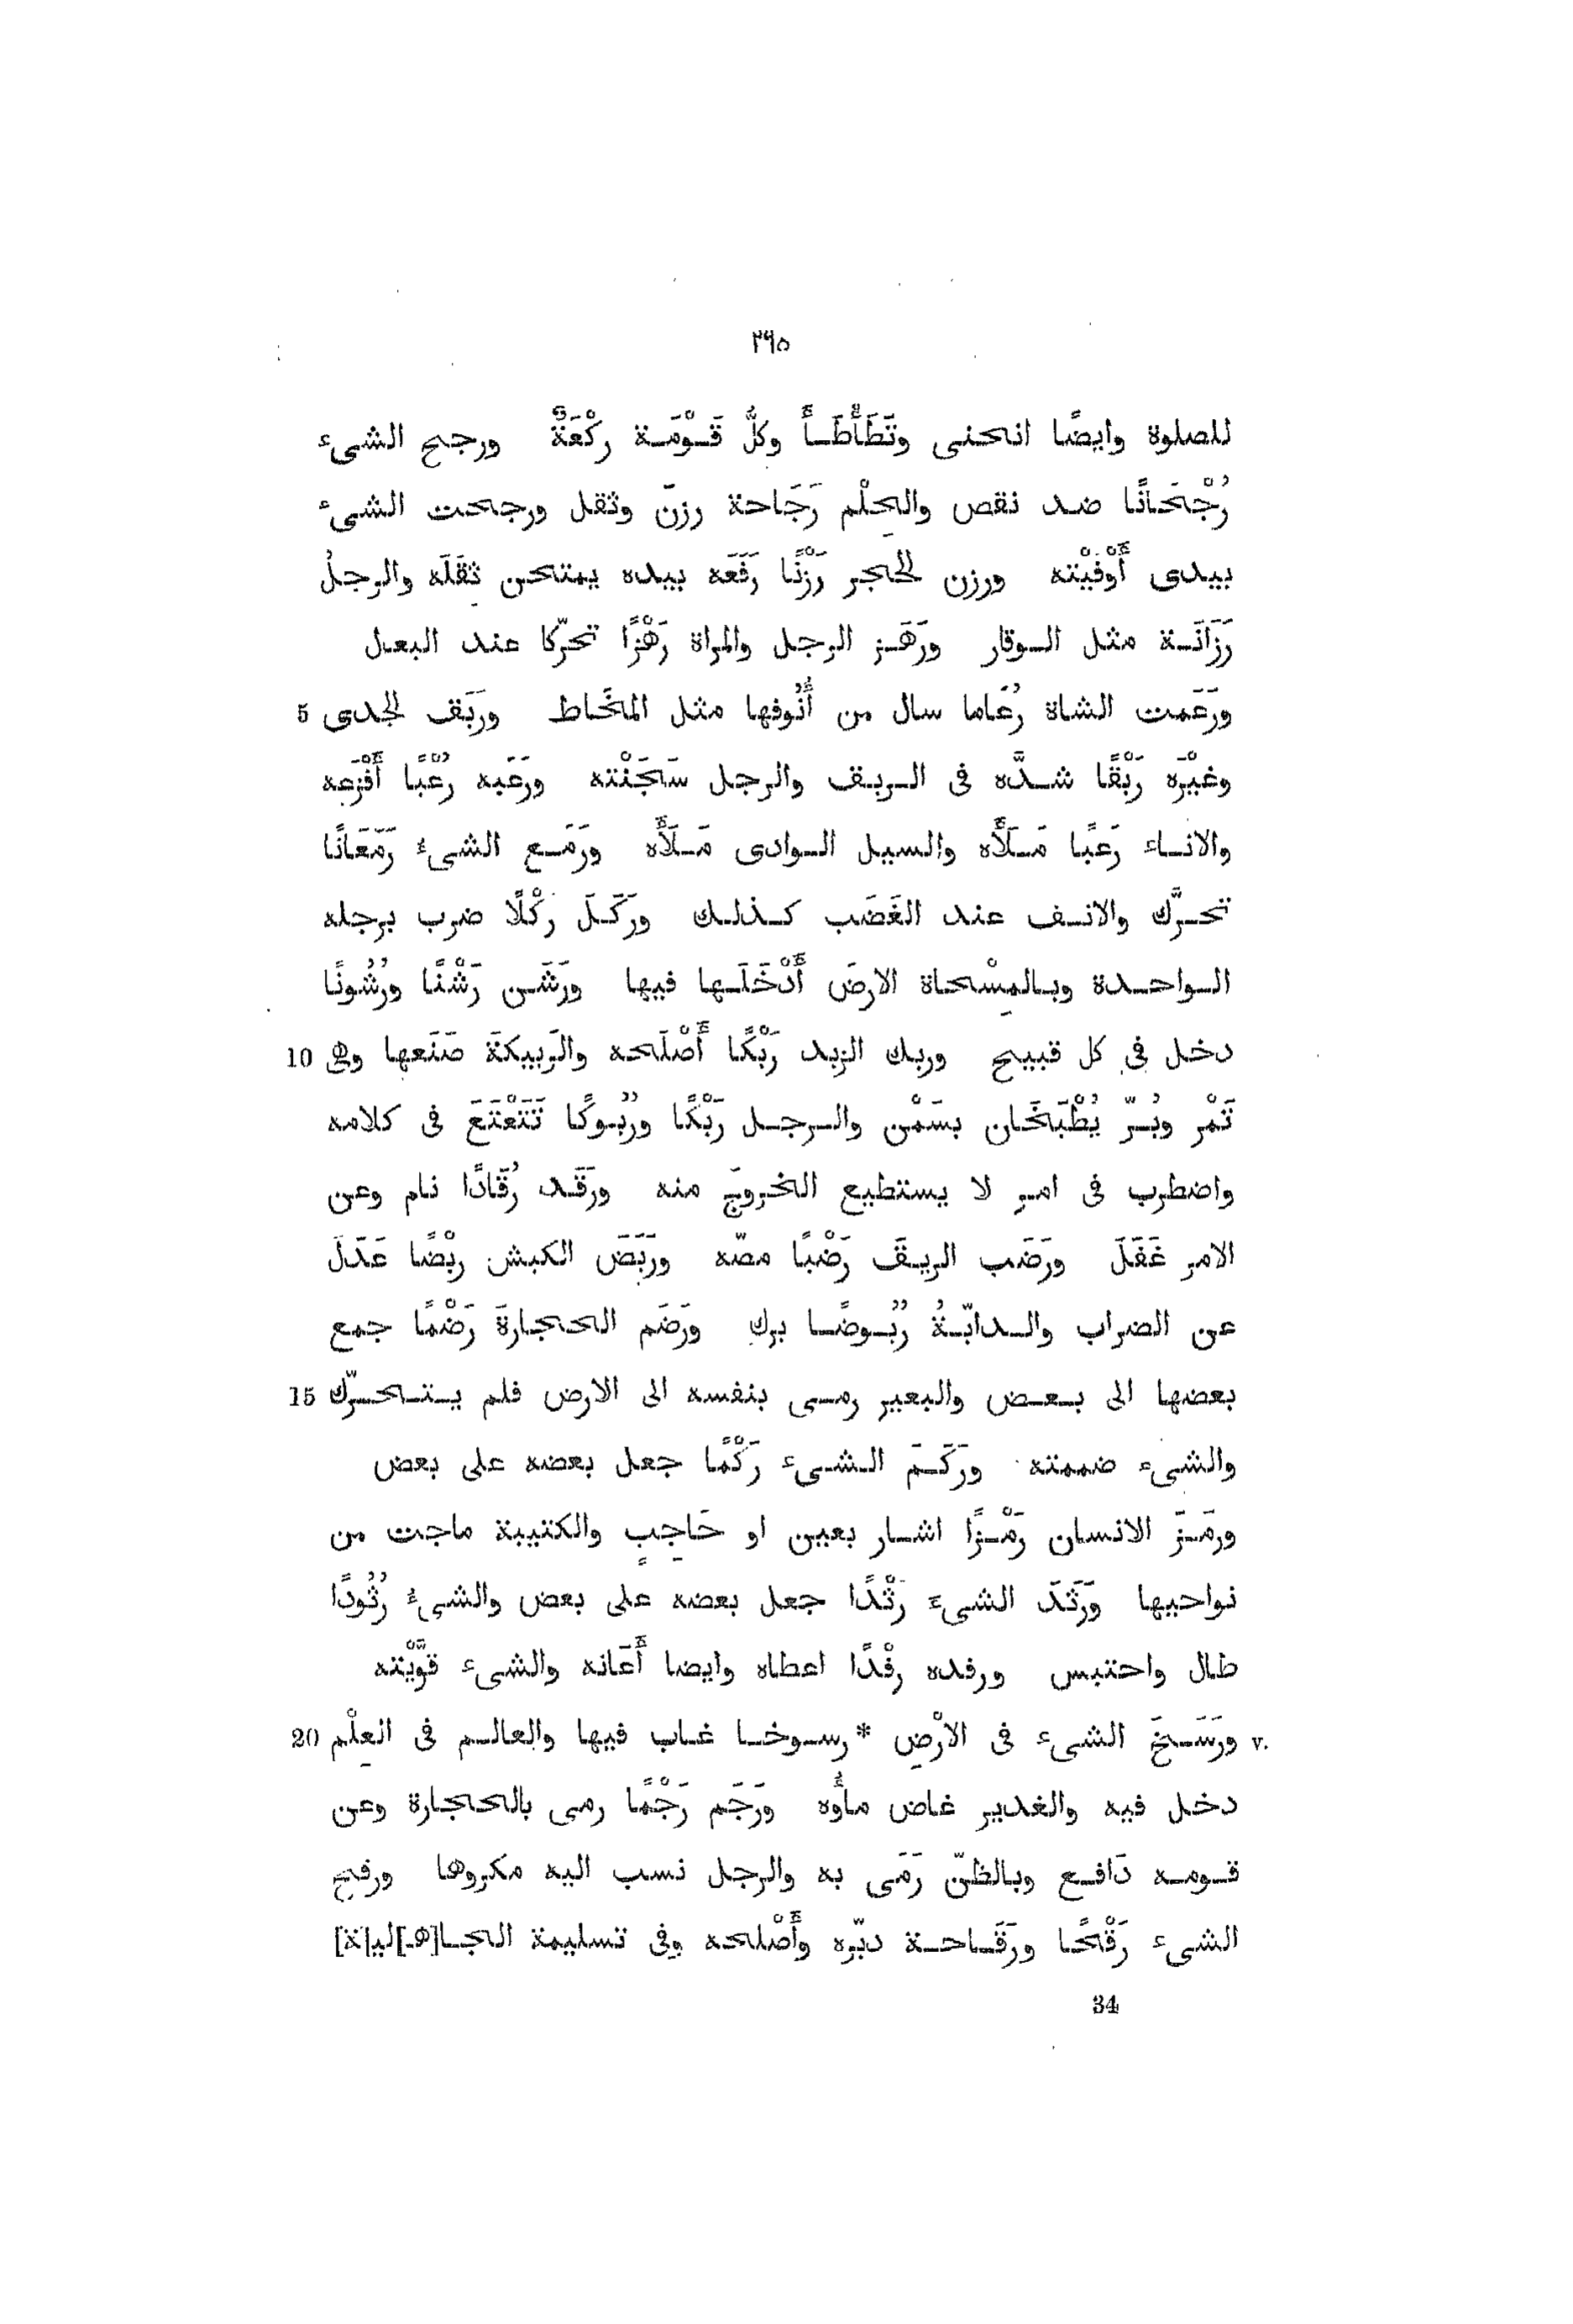 ٢٩٥
للصلوة وايضًا انحنى وتَطَأْطَأَ وكلُّ قَوْمَة رَكْعَةٌ ورجح الشىء
رُجْحَانًا ضد نقص والحِلْم رَجَاحة رزن وثقل ورجحت الشىء
بيدى أَوْفَيْته ورزن الحجر رَزْنًا رَفَعَه بيده يمتحن ثِقَلَه والرجلُ
رَزَانَة مثل الوقار ورَهَز الرجل والمراة رَهْزًا تحرّكا عند البعال
ورَعَمت الشاة رُعَاما سال من أُنُوفها مثل المخَاط ورَبَق الجدى 5
وغيْرَه رَبْقًا شدَّه فى الربق والرجل سَجَنْته ورَعَبه رُعْبًا أَفْزَعه
والاناء رَعبًا مَلَأَه والسيل الوادى مَلَأَه ورَمَع الشىءُ رَمَعَانًا
تحرَّك والانف عند الغَضَب كذلك ورَكَلَ رَكْلًا ضرب برجله
الواحدة وبالمِسْحاة الارضَ أَدْخَلَها فيها ورَشَن رَشْنًا ورُشُونًا
دخل فى كل قبيح وربك الزبد رَبْكًا أَصْلَحه والرَبيكةَ صَنَعها وهى 10
تَمْر وبُرّ يُطْبَخَان بسَمْن والرجل رَبْكًا ورُبُوكًا تَتَعْتَعَ فى كلامه
واضطرب فى امرٍ لا يستطيع الخروجَ منه ورَقَد رُقَادًا نام وعن
الامر غَفَلَ ورَضَب الريقَ رَضْبًا مصّه ورَبَضَ الكبش ربْضًا عَدَلَ
عن الضراب والدابّةُ رُبُوضًا برك ورَضَم الحجارةَ رَضْمًا جمع
بعضها الى بعض والبعير رمى بنفسه الى الارض فلم يتحرّك 15
والشىء ضممته ورَكَمَ الشىء رَكْمًا جعل بعضه على بعض
ورمَزَ الانسان رَمْزًا اشار بعين او حَاجِبٍ والكتيبة ماجت من
نواحيها ورَثَدَ الشىءَ رَثْدًا جعل بعضه على بعض والشىءُ رُثُودًا
طال واحتبس ورفده رفْدًا اعطاه وايضا أَعَانه والشىء قوَّيْته
v. ورَسَخَ الشىء فى الارْضِ *رسوخا غاب فيها والعالم فى العِلْم 20
دخل فيه والغدير غاض ماؤُه ورَجَم رَجْمًا رمى بالحجارة وعن
قومه دَافع وبالظنّ رَمَى به والرجل نسب اليه مكروها ورقح
الشىء رَقْحًا ورَقَاحة دبّره وأَصْلحه وفى تسليمة الجا[هـ]ليـ[ة]
34